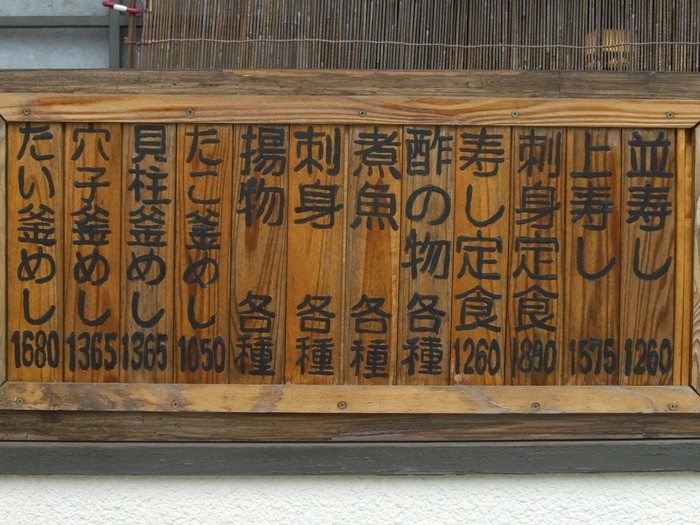 並寿し 1260
上寿し 1575
刺身定食 1890
寿し定食 1260
酢の物 各種
煮魚 各種
刺身 各種
揚物 各種
たこ釜めし 1050
貝柱釜めし 1365
穴子釜めし 1365
たい釜めし 1680